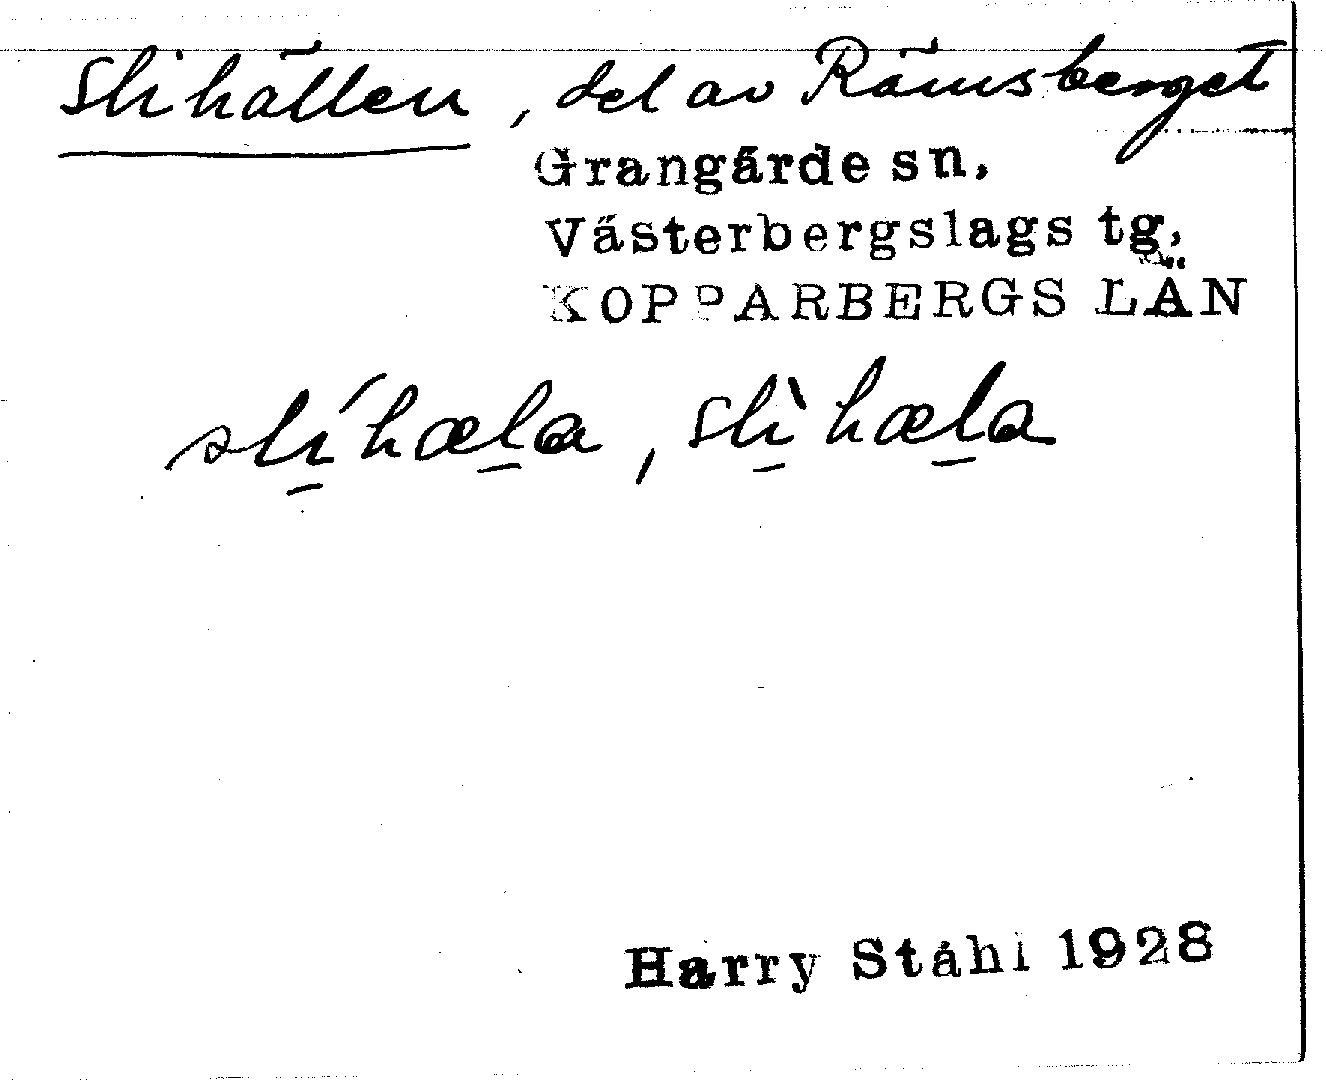 Slihällen, del av Rämsberget
Grangärde sn.
Västerbergslags tg.
KOPPARBERGS LÄN
sli̱´hæḻa, sli̱`hæḻa
Harry Ståhl 1928